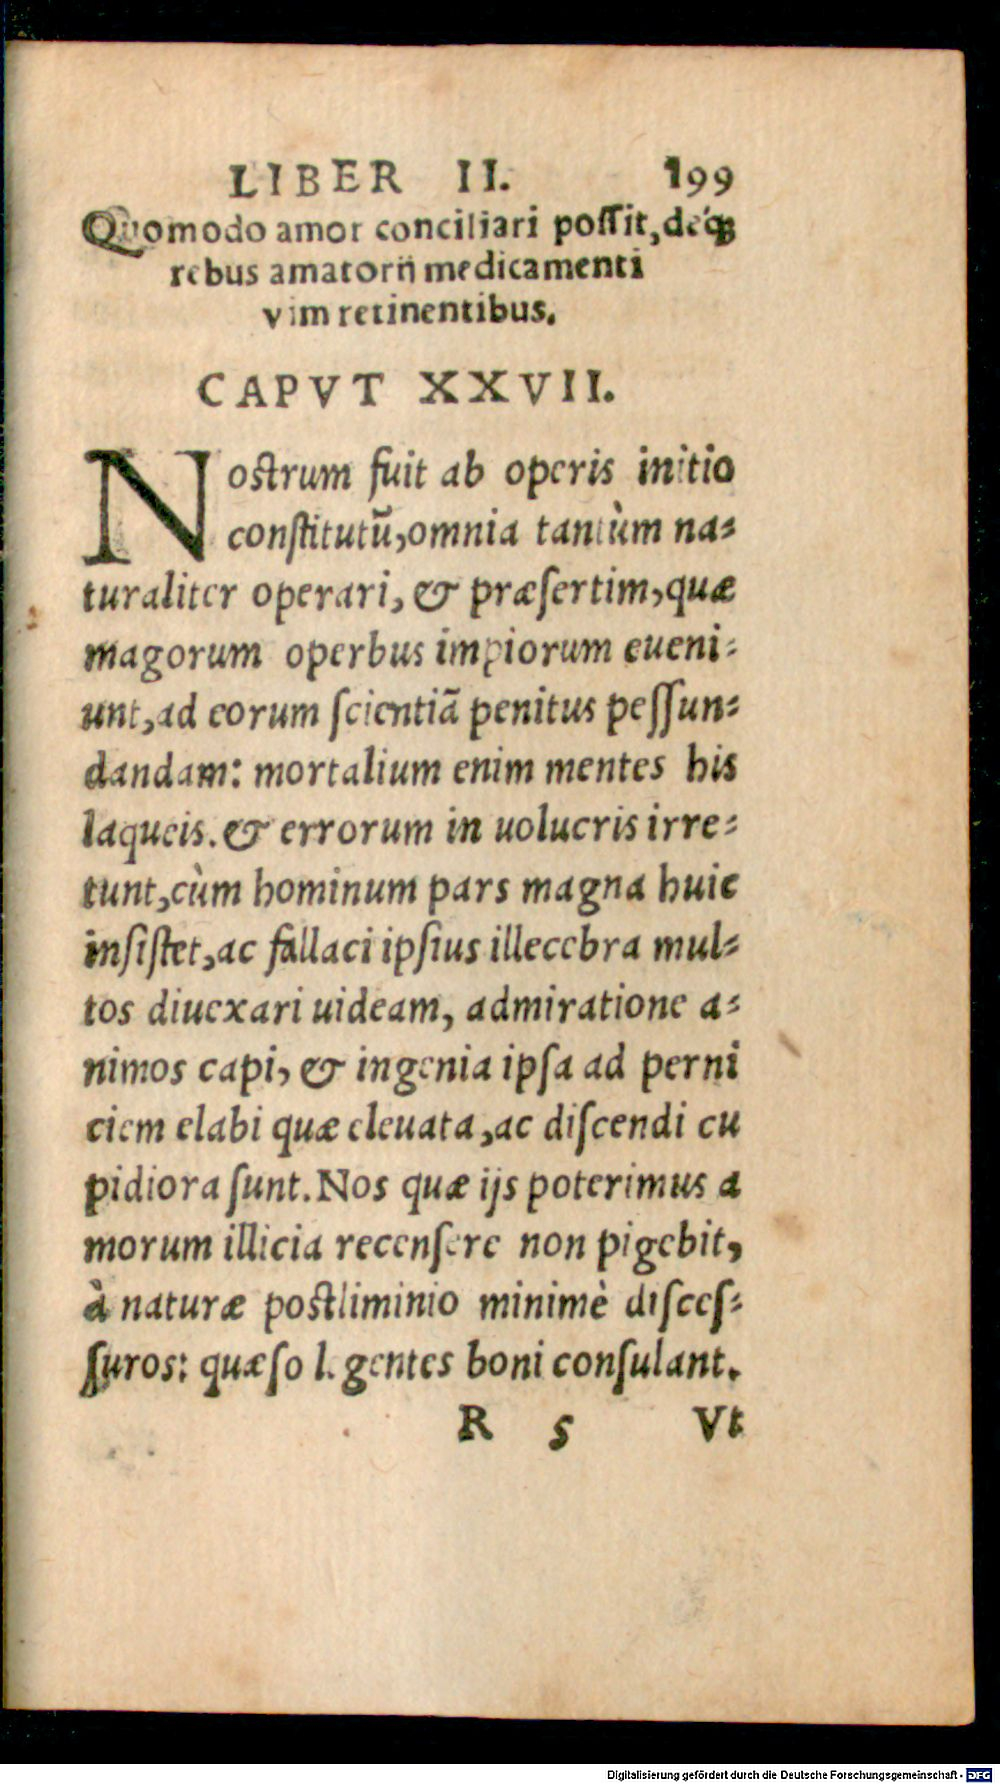 LIBER II. 199
Quomodo amor conciliari poſſit, déq;
rebus amatorii medicamenti
vim retinentibus.
CAPVT XXVII.
Nostrum fuit ab operis initio
conſtitutū, omnia tantùm na-
turaliter operari, & præſertim, quæ
magorum operbus impiorum eueni-
unt, ad eorum ſcientiã penitus peſſun-
dandam: mortalium enim mentes his
laqueis. & errorum in uolucris irre-
tunt, cùm hominum pars magna huic
inſiſtet, ac fallaci ipſius illecebra mul-
tos diuexari uideam, admiratione a-
nimos capi, & ingenia ipſa ad perni
ciem elabi quæ eleuata, ac diſcendi cu
pidiora ſunt. Nos quæ ijs poterimus a
morum illicia recenſere non pigebit,
à naturæ postliminio minimè diſceſ-
ſuros: quæſo l. gentes boni conſulant.
R 5 Vt
Digitalisierung gefördert durch die Deutsche Forschungsgemeinschaft - DFG